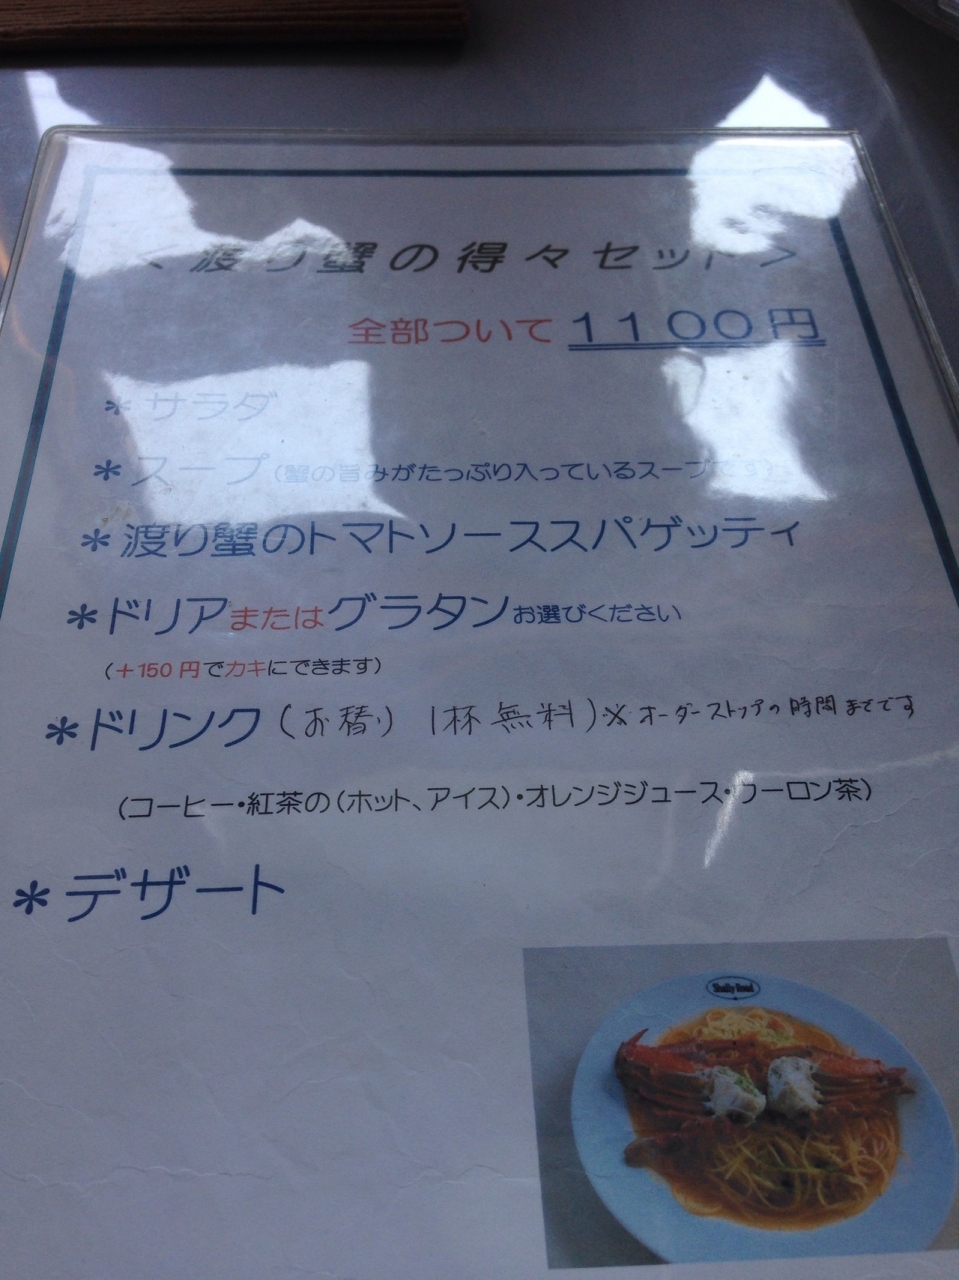 ＜渡り蟹の得々セット＞
全部ついて１１００円
＊サラダ
＊スープ（蟹の旨みがたっぷり入っているスープです）
＊渡り蟹のトマトソーススパゲッティ
＊ドリアまたはグラタンお選びください
（＋150円でカキにできます）
＊ドリンク（お替り 1杯無料）※オーダーストップの時間までです
（コーヒー・紅茶の（ホット、アイス）・オレンジジュース・ウーロン茶）
＊デザート